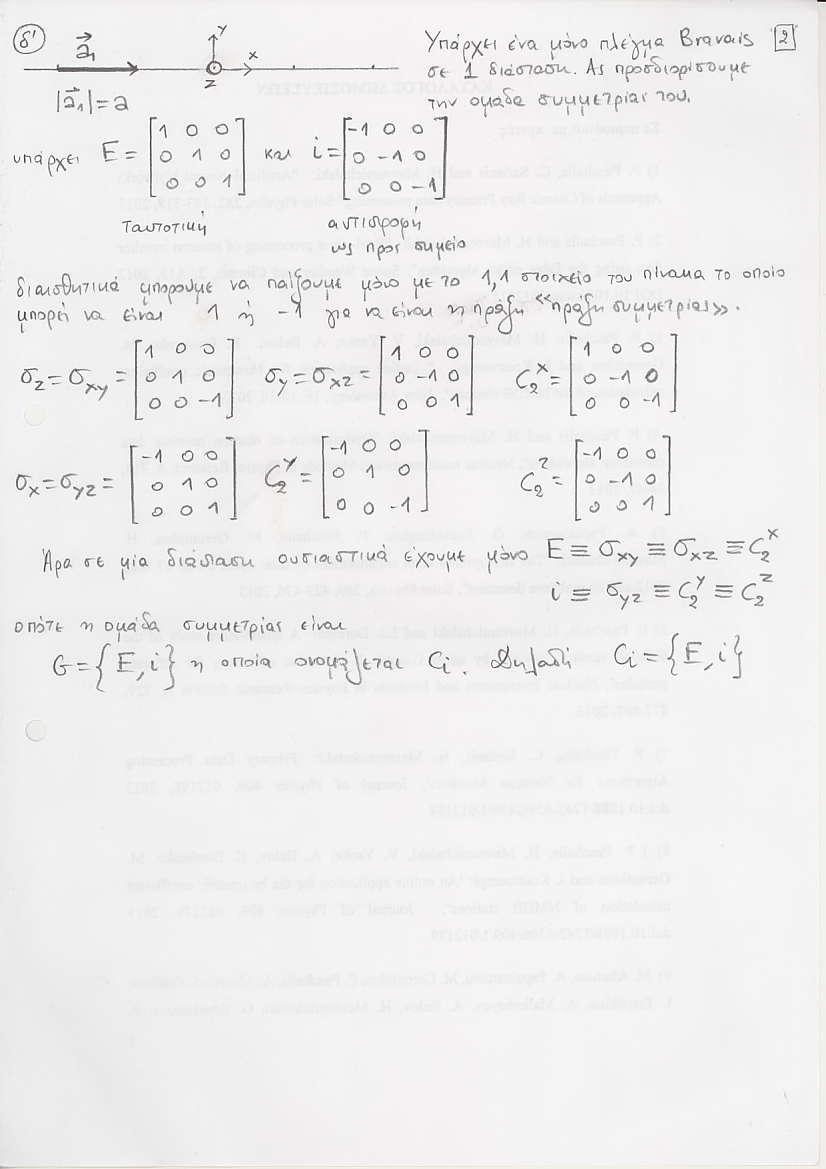 δ' a⃗₁ y x z
Υπάρχει ένα μόνο πλέγμα Bravais 2
σε 1 διάσταση. Ας προσδιορίσουμε
|a⃗₁|=a
την ομάδα συμμετρίας του.
υπάρχει E = [1 0 0; 0 1 0; 0 0 1] και i = [-1 0 0; 0 -1 0; 0 0 -1]
ταυτοτική αντιστροφή
ως προς σημείο
διαισθητικά μπορούμε να παίξουμε μόνο με το 1,1 στοιχείο του πίνακα το οποίο
μπορεί να είναι 1 ή -1 για να είναι η πράξη «πράξη συμμετρίας».
σz = σxy = [1 0 0; 0 1 0; 0 0 -1] σy = σxz = [1 0 0; 0 -1 0; 0 0 1] C₂ˣ = [1 0 0; 0 -1 0; 0 0 -1]
σx = σyz = [-1 0 0; 0 1 0; 0 0 1] C₂ʸ = [-1 0 0; 0 1 0; 0 0 -1] C₂ᶻ = [-1 0 0; 0 -1 0; 0 0 1]
Άρα σε μία διάσταση ουσιαστικά έχουμε μόνο E ≡ σxy ≡ σxz ≡ C₂ˣ
i ≡ σyz ≡ C₂ʸ ≡ C₂ᶻ
οπότε η ομάδα συμμετρίας είναι
G = {E, i} η οποία ονομάζεται Ci. Δηλαδή Ci = {E, i}